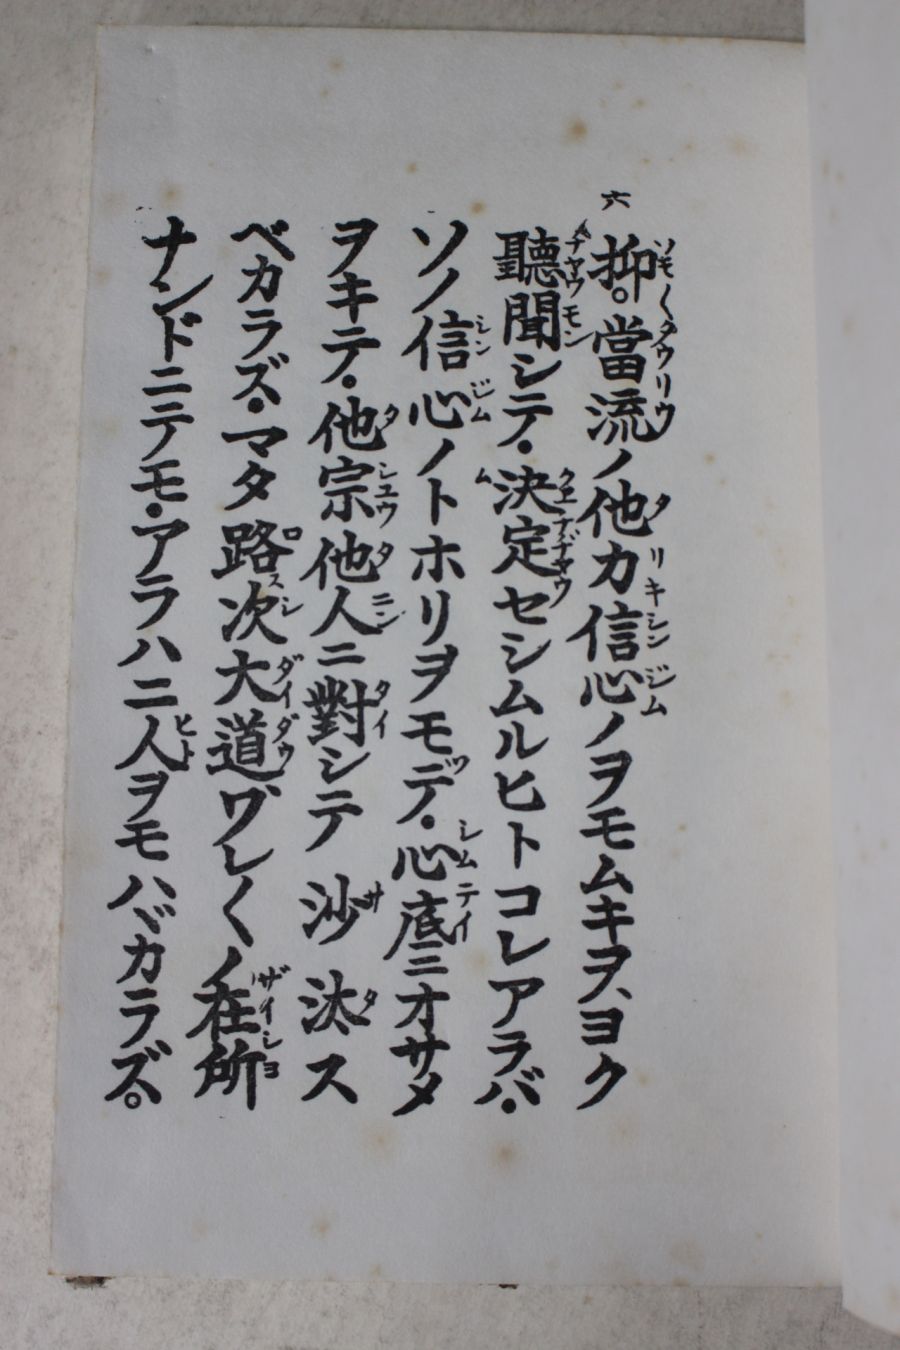 六
抑。當流ノ他力信心ノヲモムキヲ、ヨク
聽聞シテ・決定セシムルヒトコレアラバ・
ソノ信心ノトホリヲモデ・心底ニオサメ
ヲキテ・他宗他人ニ對シテ沙汰ス
ベカラズ・マタ路次大道ワレ〱ノ在所
ナンドニテモ・アラハニ人ヲモハヾカラズ。